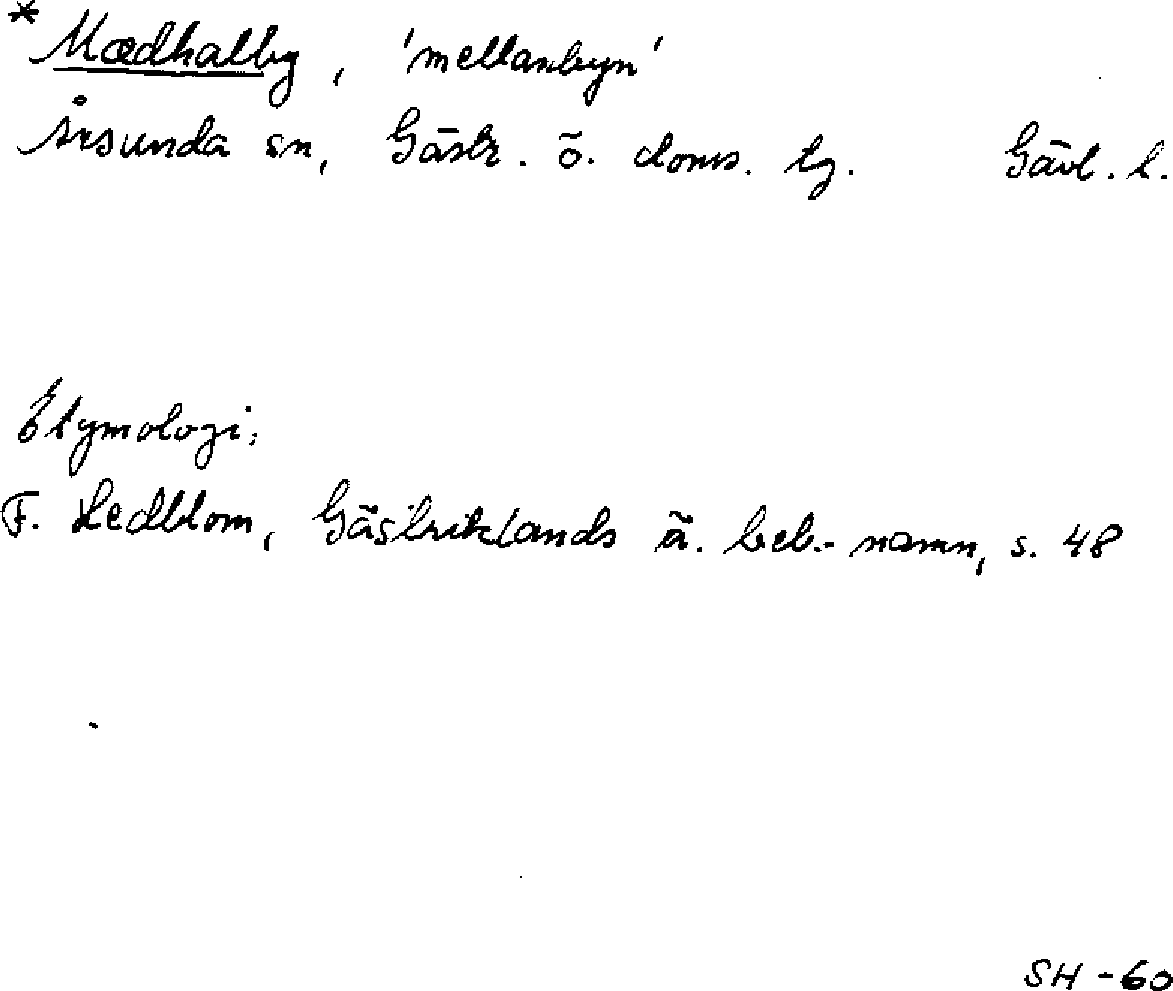 *Mædhalby, 'mellanbyn'
Årsunda sn, Gästr. ö. doms. tg. Gävl. l.
Etymologi:
F. Hedblom, Gästriklands ä. beb.-namn, s. 48
SH-60